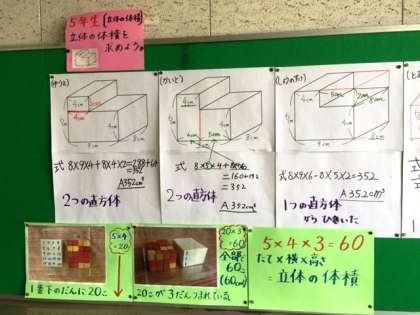 5年生(立体の体積)
立体の体積を
求めよう。
式 8×9×4+8×4×2=288+64
=352
A.352cm³
2つの直方体
式
=160+192
=352
A.352cm³
2つの直方体
式 8×9×6-8×5×2=352
A.352cm³
1つの直方体
からひきいた
5×4
=20
1番下のだんに20こ
20×3
=60
全部で
60こ
(60cm³)
20こが3だんつまれている
5×4×3=60
たて×横×高さ
=立体の体積